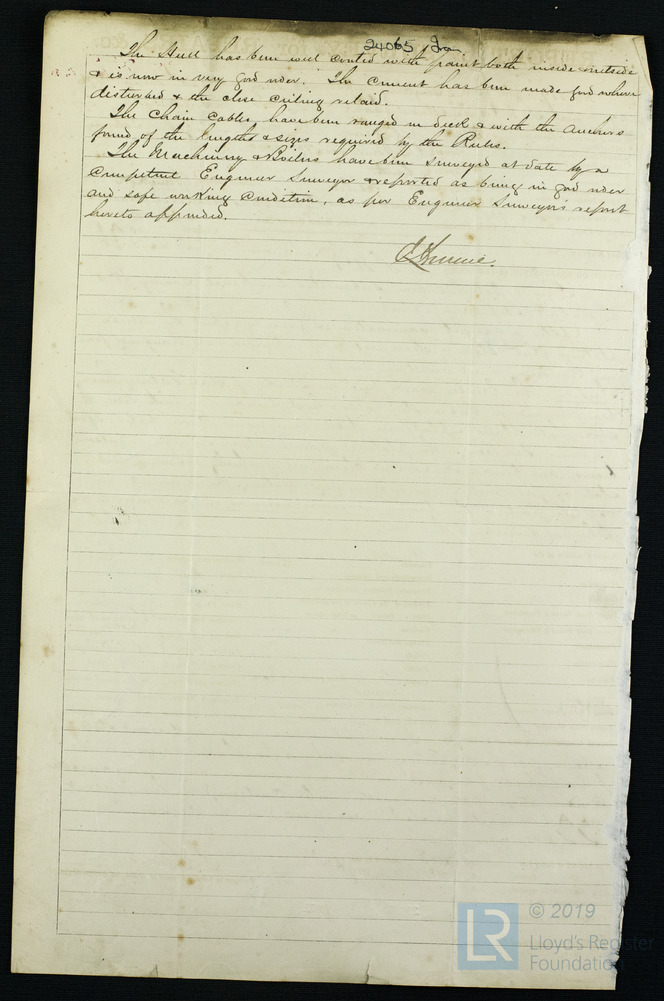 24065 Iron
The Hull has been well coated with paint both inside & outside
& is now in very good order. The cement has been made good where
disturbed & the close ceiling relaid.
The Chain Cables, have been ranged on deck & with the Anchors
found of the lengths & sizes required by the Rules.
The Machinery & Boilers have been surveyed at date by a
Competent Engineer Surveyor & reported as being in good order
and safe working Condition, as per Engineer Surveyor's report
hereto appended.
LR
© 2019
Lloyd's Register
Foundation